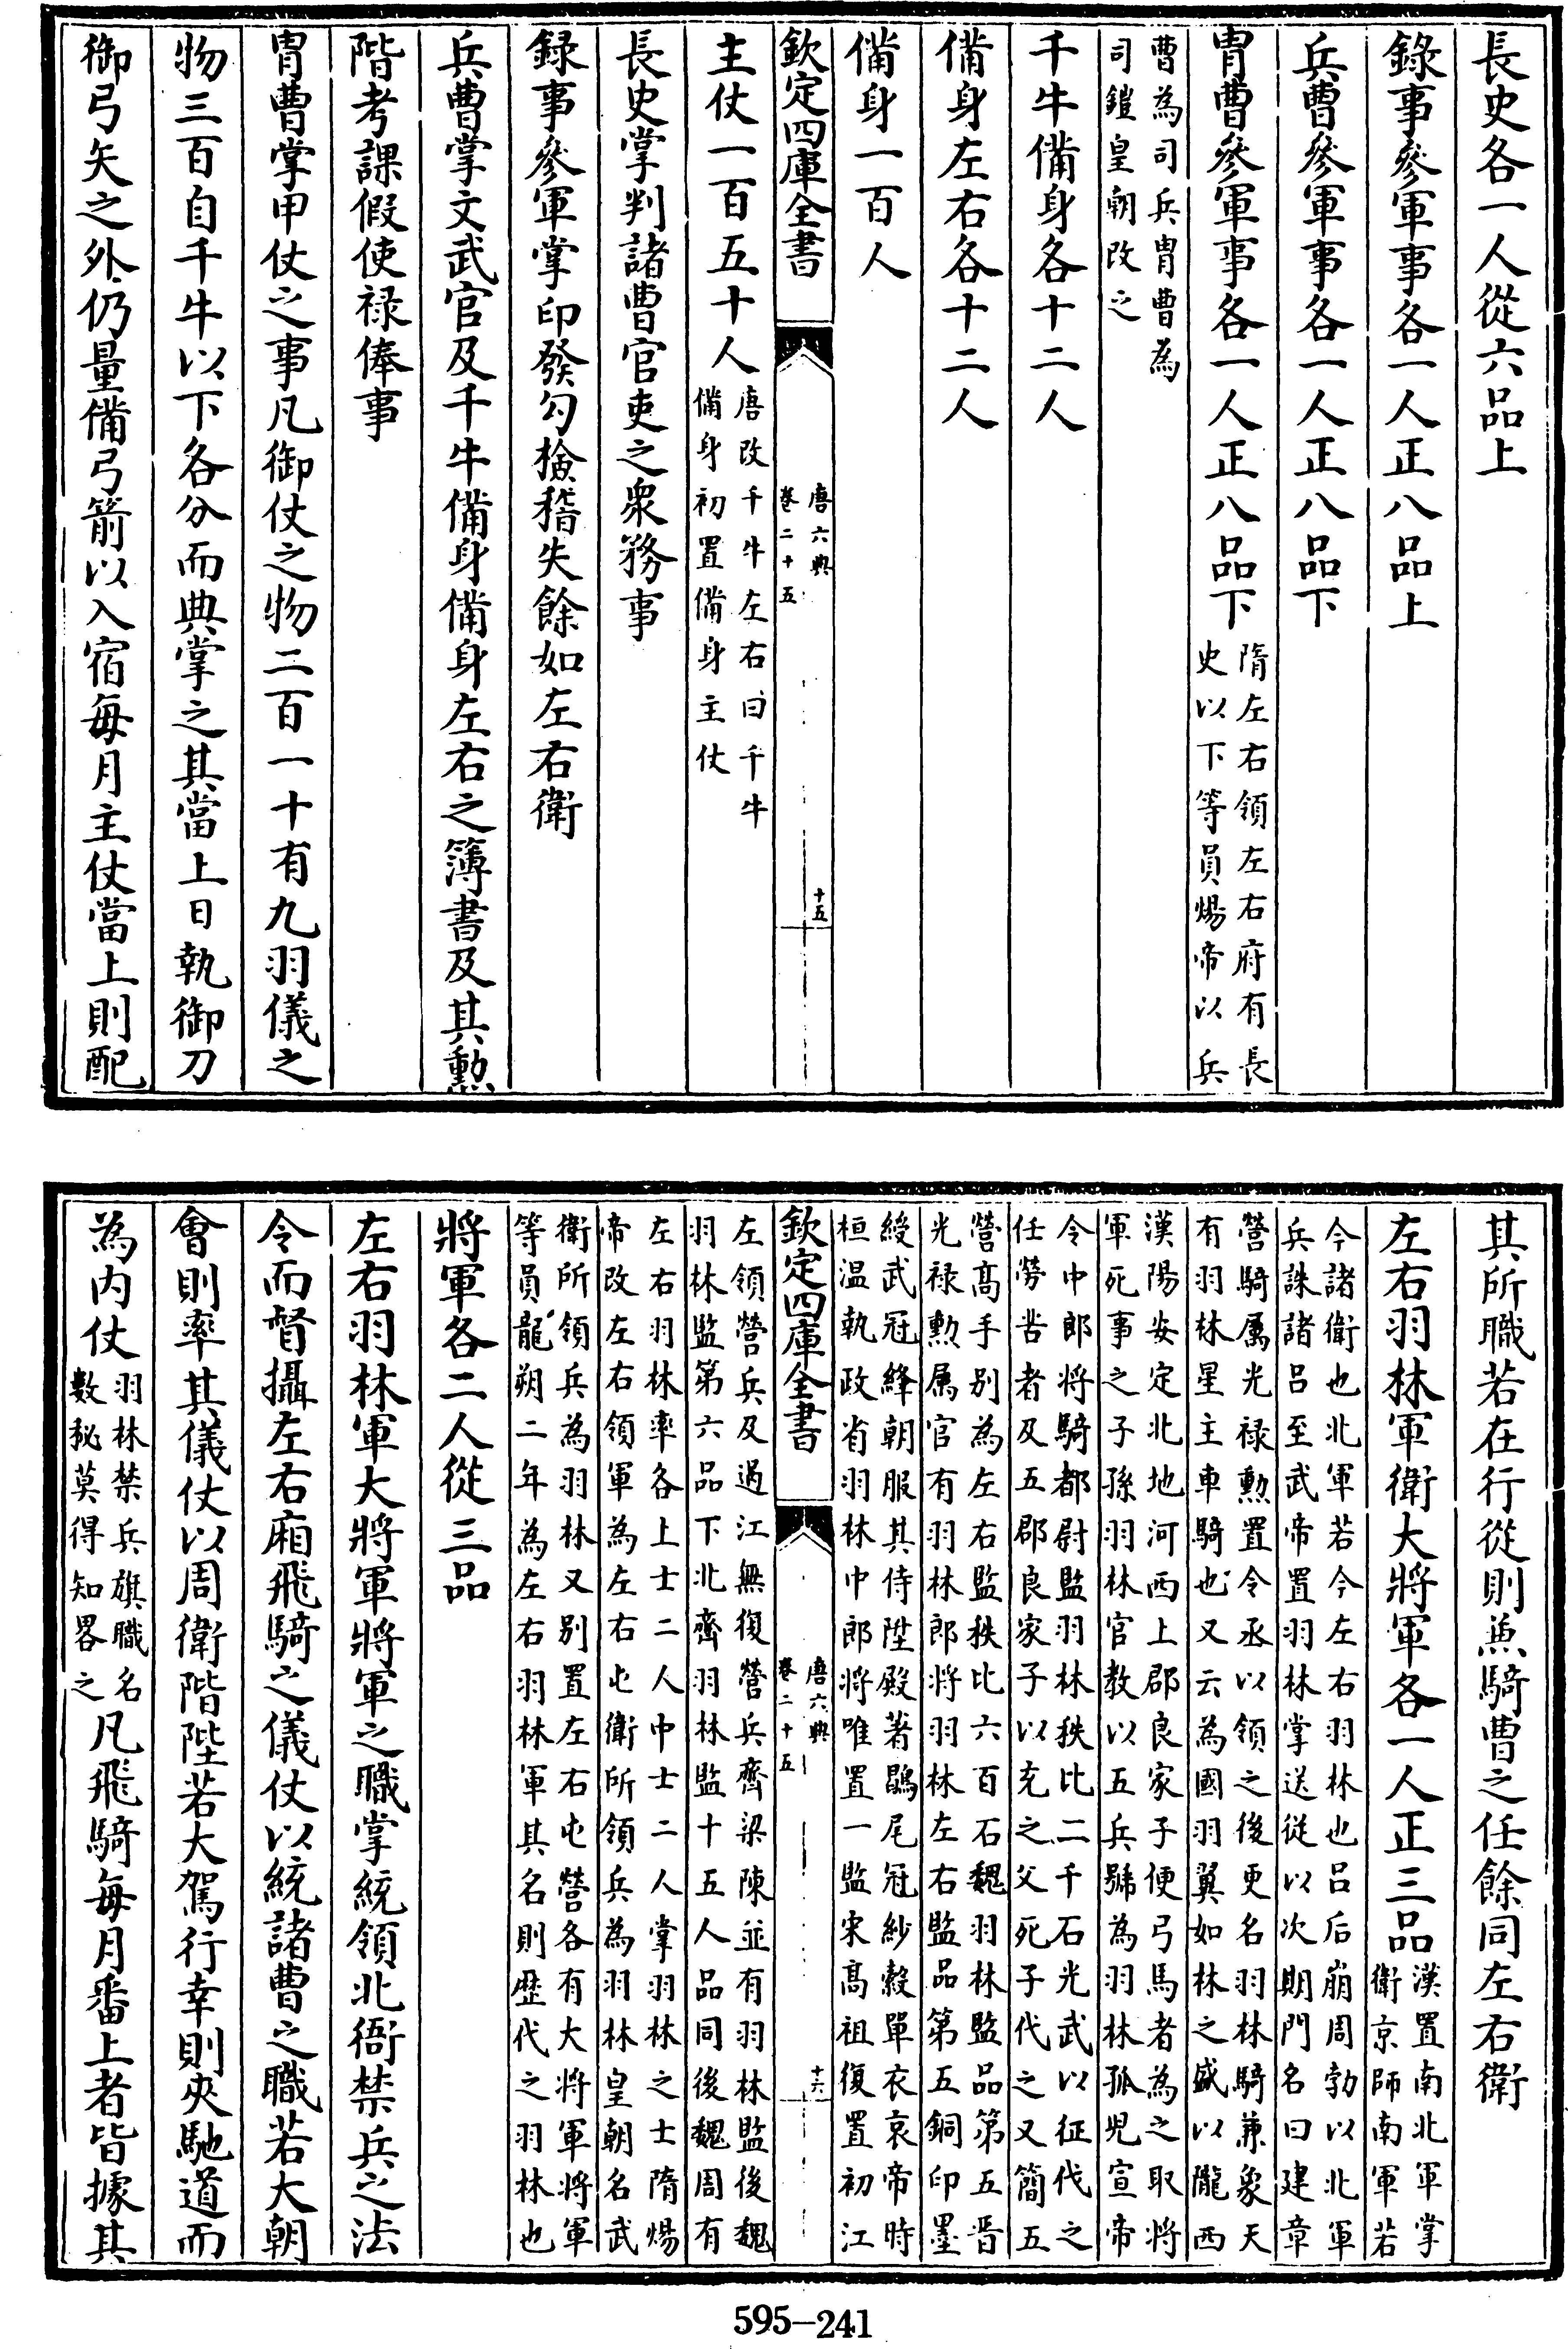 長史各一人從六品上
錄事參軍事各一人正八品上
兵曹參軍事各一人正八品下
胄曹參軍事各一人正八品下隋左右領左右府有長
史以下等員煬帝以兵
曹為司兵胄曹為
司鎧皇朝改之
千牛備身各十二人
備身左右各十二人
備身一百人
欽定四庫全書
唐六典
卷二十五
十五
主仗一百五十人唐改千牛左右曰千牛
備身初置備身主仗
長史掌判諸曹官吏之衆務事
錄事參軍掌印發勾撿稽失餘如左右衛
兵曹掌文武官及千牛備身備身左右之簿書及其勲
階考課假使禄俸事
胄曹掌甲仗之事凡御仗之物二百一十有九羽儀之
物三百自千牛以下各分而典掌之其當上日執御刀
御弓矢之外仍量備弓箭以入宿每月主仗當上則配
其所職若在行從則兼騎曹之任餘同左右衛
左右羽林軍衛大將軍各一人正三品漢置南北軍掌
衛京師南軍若
今諸衛也北軍若今左右羽林也吕后崩周勃以北軍
兵誅諸吕至武帝置羽林掌送從以次期門名曰建章
營騎属光禄勲置令丞以領之後更名羽林騎兼象天
有羽林星主車騎也又云為國羽翼如林之盛以隴西
漢陽安定北地河西上郡良家子便弓馬者為之取将
軍死事之子孫羽林官教以五兵號為羽林孤兒宣帝
令中郎将騎都尉監羽林秩比二千石光武以征伐之
任勞苦者及五郡良家子以充之父死子代之又簡五
營髙手别為左右監秩比六百石魏羽林監品第五晋
光禄勲属官有羽林郎将羽林左右監品第五銅印墨
綬武冠絳朝服其侍陛殿著鶡尾冠紗縠單衣哀帝時
桓温執政省羽林中郎将唯置一監宋髙祖復置初江
欽定四庫全書
唐六典
卷二十五
十六
左領營兵及過江無復營兵齊梁陳並有羽林監後魏
羽林監第六品下北齊羽林監十五人品同後魏周有
左右羽林率各上士二人中士二人掌羽林之士隋煬
帝改左右領軍為左右屯衛所領兵為羽林皇朝名武
衛所領兵為羽林又别置左右屯營各有大将軍将軍
等員龍朔二年為左右羽林軍其名則歴代之羽林也
將軍各二人從三品
左右羽林軍大將軍將軍之職掌統領北衙禁兵之法
令而督攝左右廂飛騎之儀仗以統諸曹之職若大朝
會則率其儀仗以周衛階陛若大駕行幸則夾馳道而
為内仗羽林禁兵旗職名
數秘莫得知畧之凡飛騎每月番上者皆據其
595-241